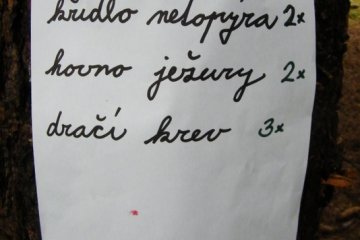 křídlo netopýra 2x
hovno ježury 2x
dračí krev 3x